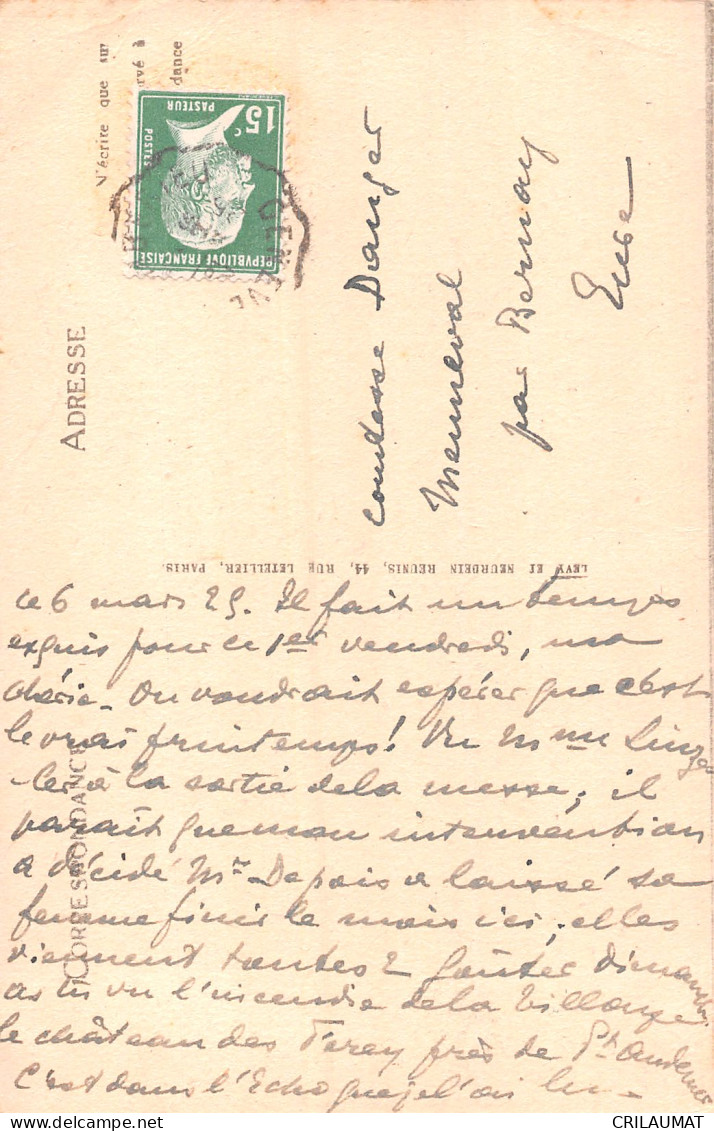 N'écrite que sur
rvé à
dance
15c
PASTEUR
POSTES
REPVBLIQVE FRANÇAISE
GENEVE
ADRESSE
comtesse Danger
Menneval
par Bernay
Eure
LEVY ET NEURDEIN REUNIS, 44, RUE LETELLIER, PARIS.
CORRESPONDANCE
ce 6 mars 25. Il fait un temps
exquis pour ce 1er vendredi, ma
chérie. On voudrait espérer que c'est
le vrai printemps! Vu Mme
à la sortie de la messe; il
paraît que mon intervention
a décidé Mr Depois a laissé sa
femme finir le mois ici; elles
viennent toutes 2 goûter dimanche
as tu vu l'incendie de la
le château des près de Pt Audemer
C'est dans l'Echo que je l'ai lu.
CRILAUMAT